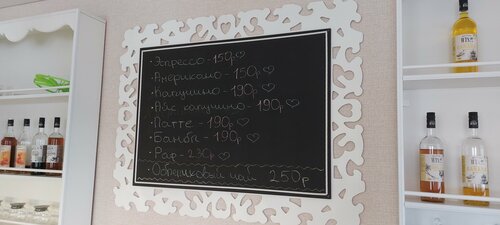 · Эспрессо - 150р ♡
· Американо - 150р ♡
· Капучино - 190р ♡
· Айс капучино - 190р ♡
· Латте - 190р ♡
· Бамбл - 190р ♡
· Раф - 230р ♡
Облепиховый чай 250р